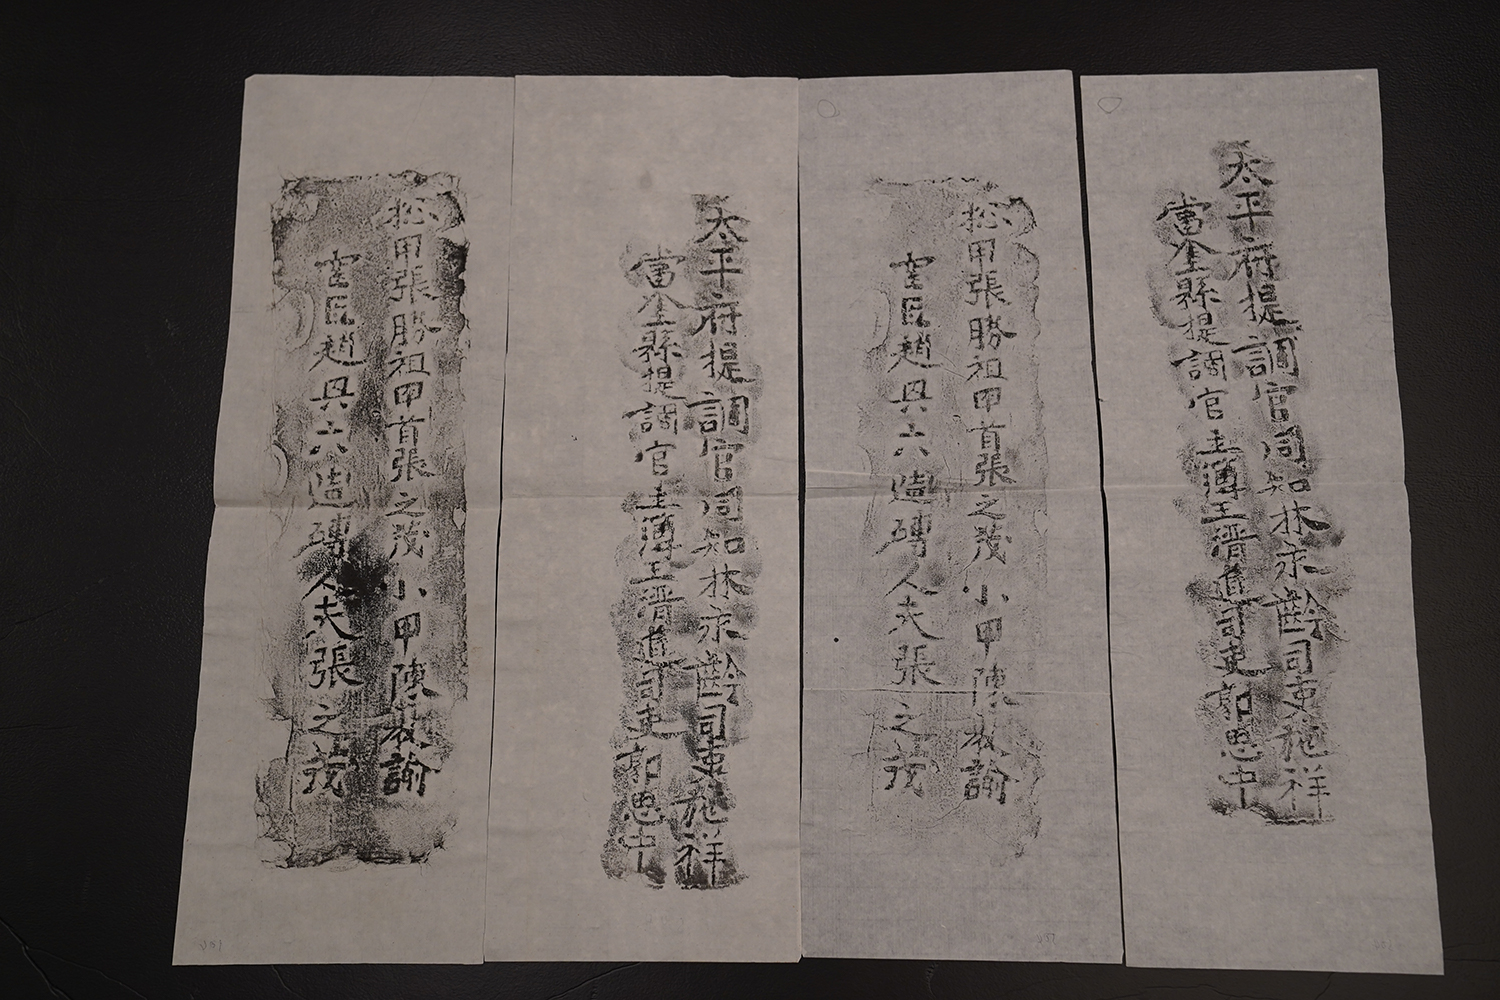 太平府提調官同知林永齡司吏施祥
當塗縣提調官主簿王晋道司吏郭思中
捴甲張勝祖甲首張之茂小甲陳教諭
窑匠趙興六造磚人夫張之茂
太平府提調官同知林永齡司吏施祥
當塗縣提調官主簿王晋道司吏郭思中
捴甲張勝祖甲首張之茂小甲陳教諭
窑匠趙興六造磚人夫張之茂